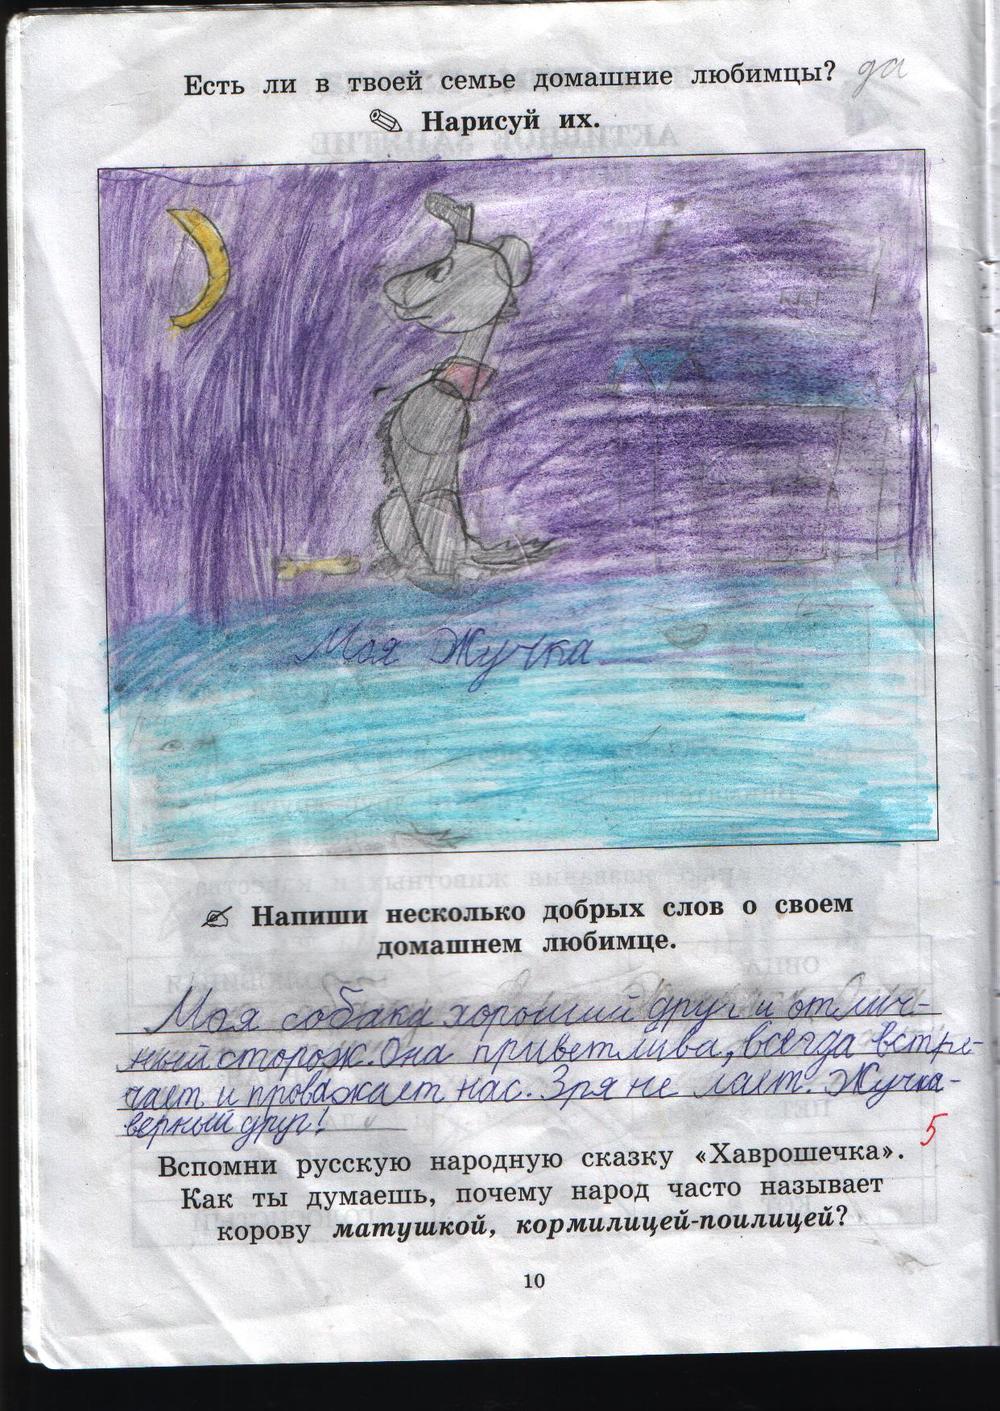 Есть ли в твоей семье домашние любимцы? да
Нарисуй их.
Моя Жучка
Напиши несколько добрых слов о своем
домашнем любимце.
Моя собака хороший друг и отлич-
ный сторож. Она приветлива, всегда встре-
чает и провожает нас. Зря не лает. Жучка-
верный друг!
5
Вспомни русскую народную сказку «Хаврошечка».
Как ты думаешь, почему народ часто называет
корову матушкой, кормилицей-поилицей?
10